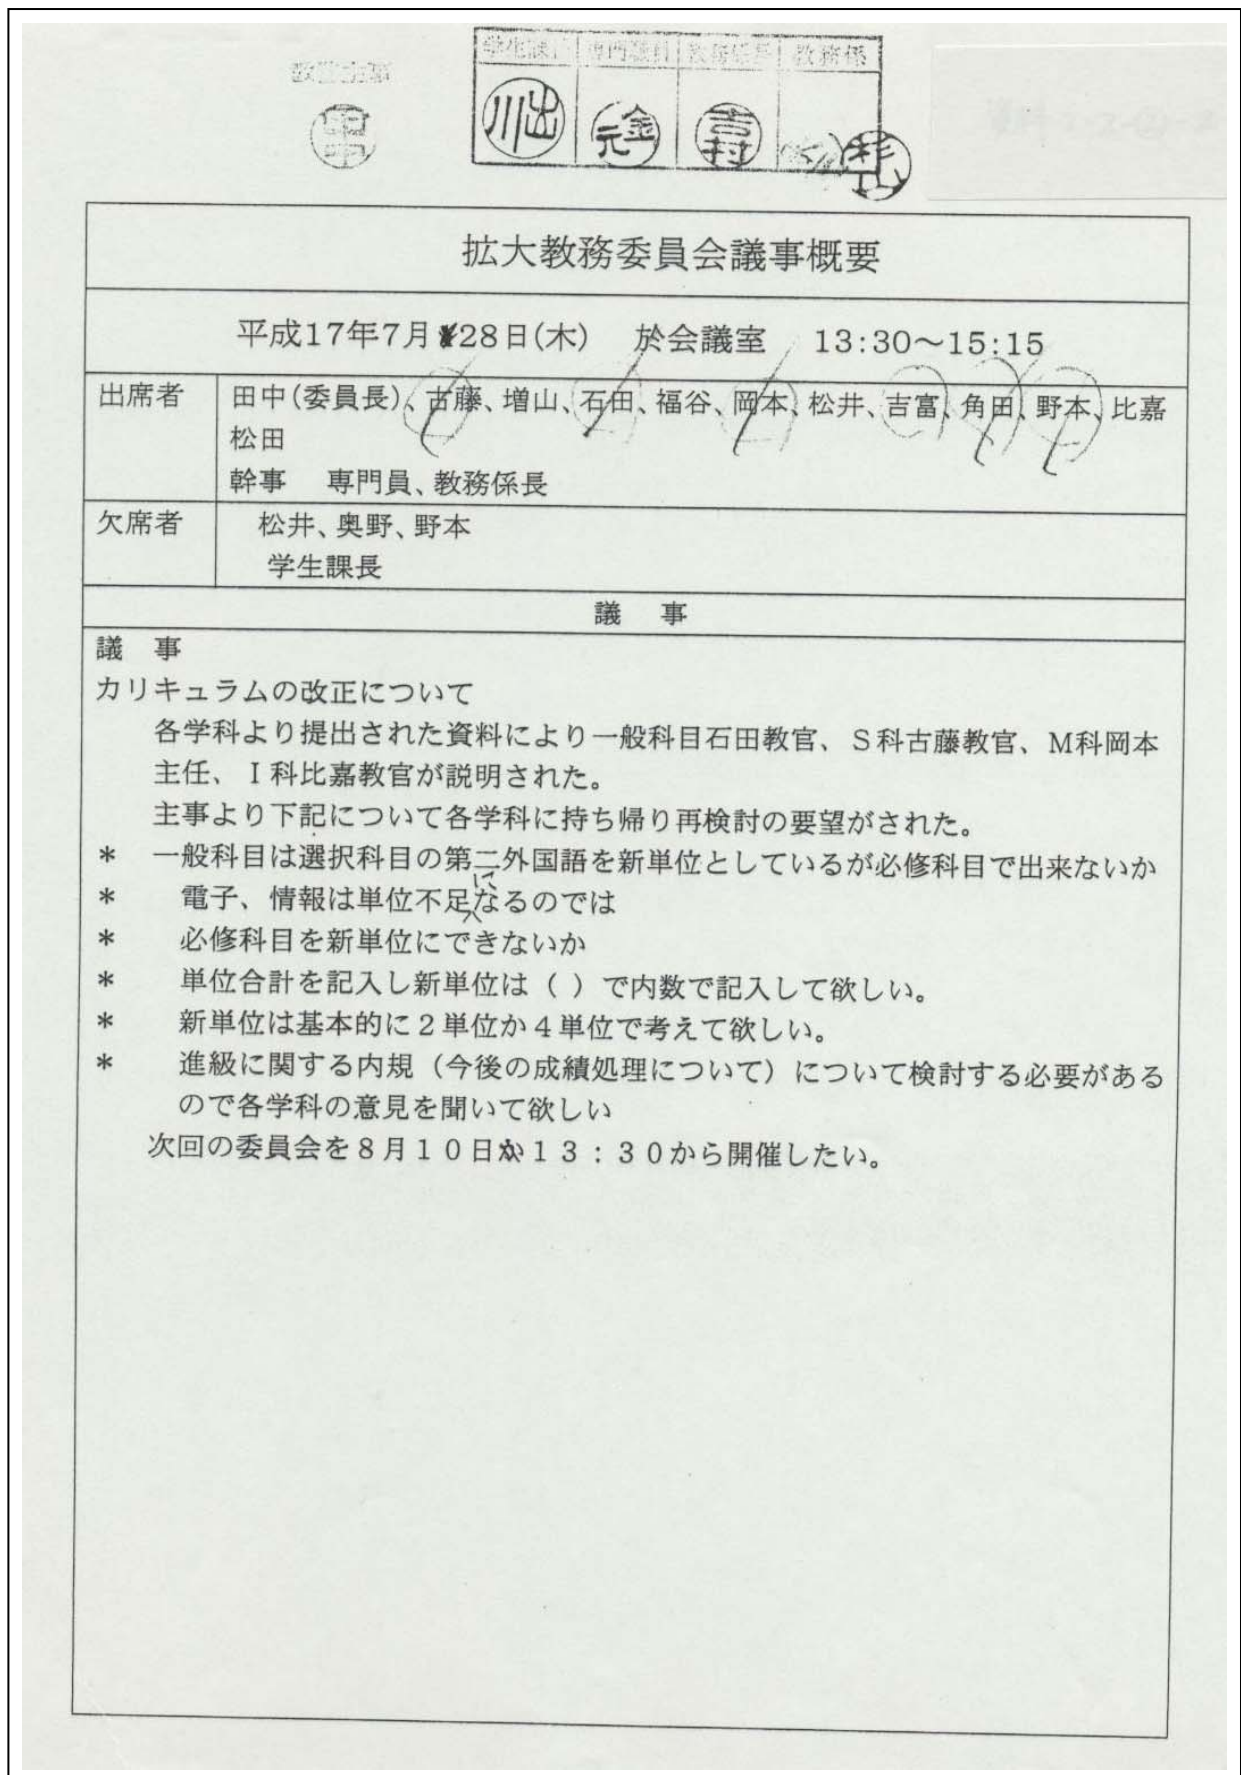 教務主事
学生課長 専門職員 教務係長 教務係
田中
川出 金元 吉村 杉山
拡大教務委員会議事概要
平成17年7月28日(木) 於会議室 13:30～15:15
出席者 田中(委員長)、古藤、増山、石田、福谷、岡本、松井、吉富、角田、野本、比嘉
松田
幹事 専門員、教務係長
欠席者 松井、奥野、野本
学生課長
議 事
議 事
カリキュラムの改正について
各学科より提出された資料により一般科目石田教官、S科古藤教官、M科岡本
主任、I科比嘉教官が説明された。
主事より下記について各学科に持ち帰り再検討の要望がされた。
* 一般科目は選択科目の第二外国語を新単位としているが必修科目で出来ないか
* 電子、情報は単位不足になるのでは
* 必修科目を新単位にできないか
* 単位合計を記入し新単位は（ ）で内数で記入して欲しい。
* 新単位は基本的に２単位か４単位で考えて欲しい。
* 進級に関する内規（今後の成績処理について）について検討する必要がある
ので各学科の意見を聞いて欲しい
次回の委員会を８月１０日１３：３０から開催したい。